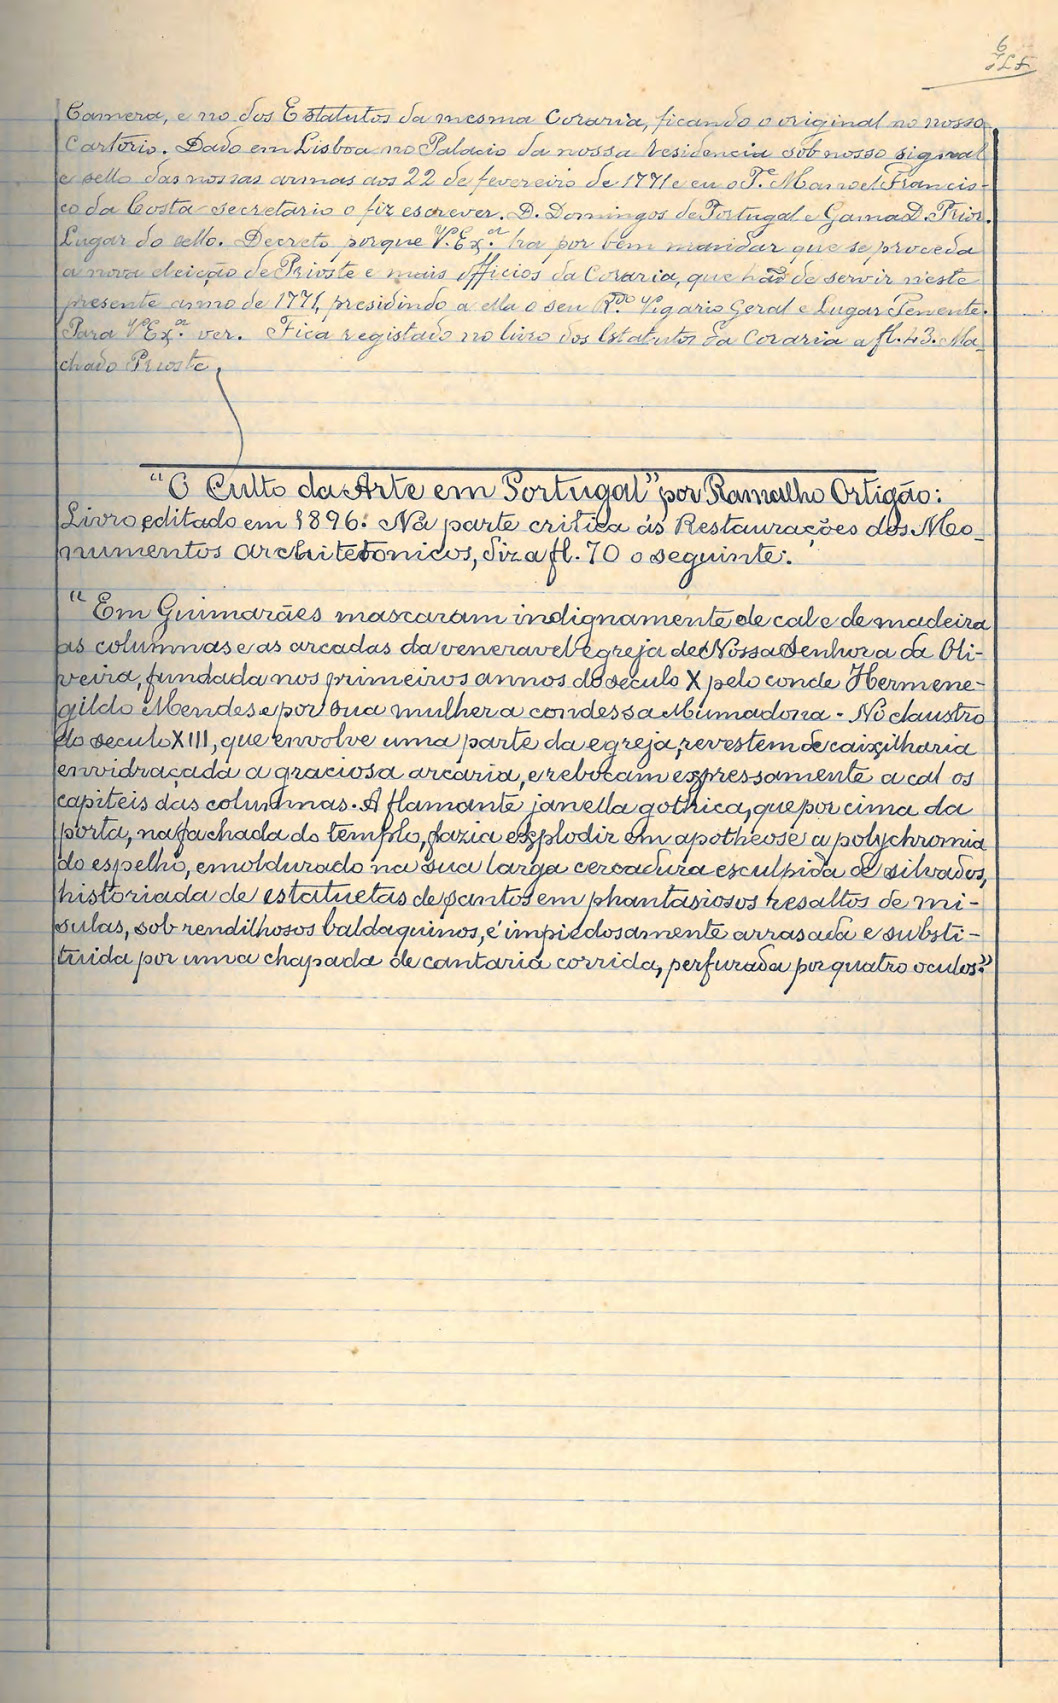 6
Camera, e no dos Estatutos da mesma Coraria, ficando o original no nosso
Cartorio. Dado em Lisboa no Palacio da nossa residencia sob nosso signal
e sello das nossas armas aos 22 de fevereiro de 1771 e eu o Pe. Manoel Francis-
co da Costa secretario o fiz escrever. D. Domingos de Portugal e Gama D. Prior.
Lugar do sello. Decreto porque V. Exa. ha por bem mandar que se proceda
a nova eleição de Prioste e mais officios da Coraria, que hão de servir n'este
presente anno de 1771, presidindo a ella o seu Rdo. Vigario Geral e Lugar Tenente.
Para V. Exa. ver. Fica registado no livro dos Estatutos da Coraria a fl. 43. Ma-
chado Prioste.
"O Culto da Arte em Portugal" por Ramalho Ortigão:
Livro editado em 1896. Na parte critica ás Restaurações dos Mo-
numentos architetonicos, diz a fl. 70 o seguinte:
"Em Guimarães mascaram indignamente de cal e de madeira
as columnas e as arcadas da veneravel egreja de Nossa Senhora da Oli-
veira, fundada nos primeiros annos do seculo X pelo conde Hermene-
gildo Mendes e por sua mulher a condessa Mumadona. No claustro
do seculo XIII, que envolve uma parte da egreja, revestem de caixilharia
envidraçada a graciosa arcaria, e rebocam expressamente a cal os
capiteis das columnas. A flamante janella gothica, que por cima da
porta, na fachada do templo, fazia explodir em apotheose a polychromia
do espelho, emoldurado na sua larga cercadura esculpida de silvados,
historiada de estatuetas de santos em phantasiosos resaltos de mi-
sulas, sob rendilhosos baldaquinos, é impiedosamente arrasada e substi-
tuida por uma chapada de cantaria corrida, perfurada por quatro oculos."